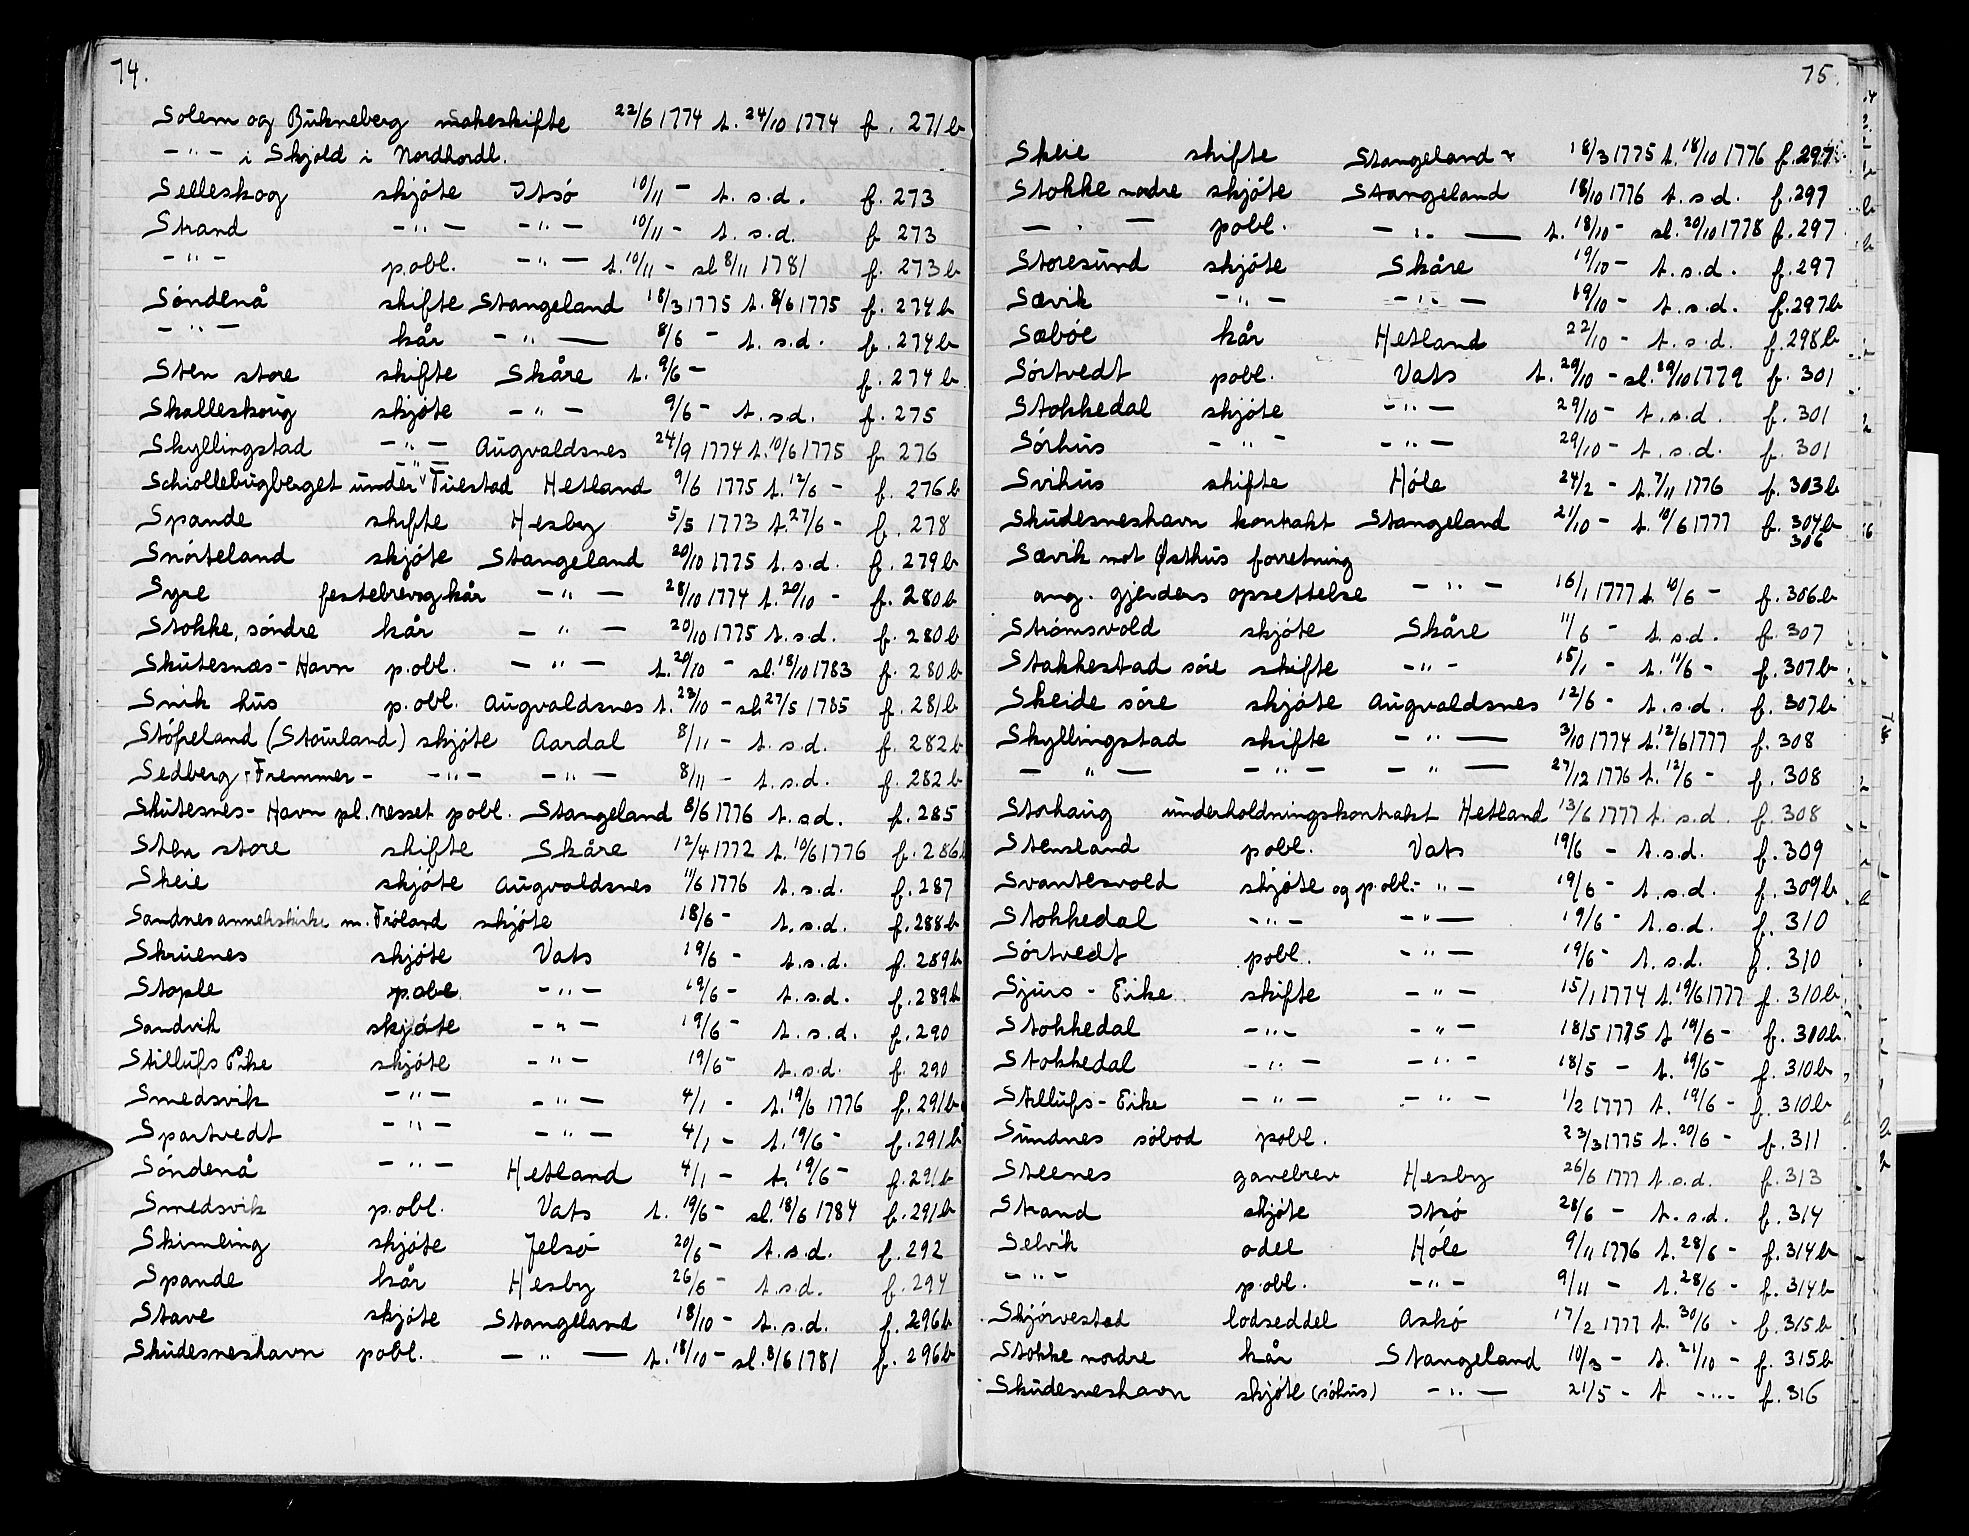 74.
Solem og Bukneberg makeskifte 22/6 1774 t. 24/10 1774 f. 271b
-"- i Skjold i Nordhordl.
Selleskog skjöte Itsö 10/11 - t. s.d. f. 273
Strand -"- -"- 10/11 - t. s.d. f. 273
-"- p.obl. -"- t. 10/11 - sl 8/11 1781 f. 273b
Söndenå skifte Stangeland 18/3 1775 t. 8/6 1775 f. 274b
-"- kår -"- 8/6 - t. s.d. f. 274b
Sten store skifte Skåre t. 9/6 - f. 274b.
Skalleskoug skjöte -"- 9/6 - t. s.d. f. 275
Skyllingstad -"- Augvaldsnes 24/9 1774 t. 10/6 1775 f. 276
Schiollebugberget under Tuestad -"- Hetland 9/6 1775 t. 12/6 - f. 276b
Spande skifte Hesby 5/5 1773 t. 27/6 - f. 278
Snörteland skjöte Stangeland 20/10 1775 t. s.d. f. 279b
Syre festebrev og kår -"- 28/10 1774 t. 20/10 - f. 280b
Stokke, söndre kår -"- 20/10 1775 t. s.d. f. 280b
Skutesnæs-Havn p.obl. -"- t. 20/10 - sl. 18/10 1783 f. 280b
Snik hus p.obl. Augvaldsnes t. 23/10 - sl. 27/5 1785 f. 281b
Stöfreland (Stourland) skjöte Aardal 8/11 - t. s.d. f. 282b
Sedberg-Fremmer- -"- -"- 8/11 - t. s.d. f. 282b
Skutesnes-Havn pl. Nesset pobl. Stangeland 8/6 1776 t. s.d. f. 285
Sten store skifte Skåre 12/4 1772 t. 10/6 1776 f. 286b
Skeie skjöte Augvaldsnes 11/6 1776 t. s.d. f. 287
Sandnes annekskirke m. Fröland skjöte 18/6 - t. s.d. f. 288b
Skruenes skjöte Vats 19/6 - t. s.d. f. 289b
Stople p.obl. -"- 19/6 - t. s.d. f. 289b
Sandvik skjöte -"- 19/6 - t. s.d. f. 290
Stillufs Eike skjöte -"- 19/6 - t. s.d. f. 290
Smedsvik -"- -"- 4/1 - t. 19/6 1776 f. 291b
Spartvedt -"- -"- 4/1 - t. 19/6 - f. 291b
Söndenå -"- Hetland 4/1 - t. 19/6 - f. 291b
Smedsvik p.obl. Vats t. 19/6 - sl. 18/6 1784 f. 291b
Skimling skjöte Jelsö 20/6 - t. s.d. f. 292
Spande kår Hesby 26/6 - t. s.d. f. 294
Stave skjöte Stangeland 18/10 - t. s.d. f. 296b
Skudesneshavn pobl. -"- t. 18/10 - sl. 8/6 1781 f. 296b
75.
Skeie skifte Stangeland 18/3 1775 t. 18/10 1776 f. 297
Stokke nodre skjöte Stangeland 18/10 1776 t. s.d. f. 297
-"- pobl. -"- t. 18/10 - sl. 20/10 1778 f. 297
Storesund skjöte Skåre 19/10 - t. s.d. f. 297
Sævik -"- -"- 19/10 - t. s.d. f. 297b
Sæböe kår Hetland 22/10 - t. s.d. f. 298b
Sörtvedt pobl. Vats t. 29/10 - sl. 29/10 1779 f. 301
Stokkedal skjöte -"- 29/10 - t. s.d. f. 301
Sörhus -"- -"- 29/10 - t. s.d. f. 301
Svihus skifte Höle 24/2 - t. 7/11 1776 f. 303b
Skudesneshavn kontrakt Stangeland 21/10 - t. 10/6 1777 f. 304b
306
Sævik mot Østhus forretning
ang. gjerders opsettelse -"- 16/1 1777 t. 10/6 - f. 306b
Strömsvold skjöte Skåre 11/6 - t. s.d. f. 307
Stakkestad söre skifte -"- 15/1 - t. 11/6 - f. 307b
Skeide söre skjöte Augvaldsnes 12/6 - t. s.d. f. 307b
Skyllingstad skifte -"- 3/10 1774 t. 12/6 1777 f. 308
-"- -"- -"- 27/12 1776 t. 12/6 - f. 308
Stohaug underholdningskontrakt Hetland 13/6 1777 t. s.d. f. 308
Stensland pobl. Vats 19/6 - t. s.d. f. 309
Svantesvold skjöte og p.obl. -"- 19/6 - t. s.d. f. 309b
Stokkedal -"- -"- 19/6 - t. s.d. f. 310
Sörtvedt pobl. -"- 19/6 - t. s.d. f. 310
Sjurs-Eike skifte -"- 15/1 1774 t. 19/6 1777 f. 310b
Stokkedal -"- -"- 18/5 1775 t 19/6 - f. 310b.
Stokkedal -"- -"- 18/5 - t. 19/6 - f. 310b
Stillufs-Eike -"- -"- 1/2 1777 t. 19/6 - f. 310b
Sundnes söbod pobl. 23/3 1775 t. 20/6 - f. 311
Steenes gavebrev Hesby 26/6 1777 t. s.d. f. 313
Strand skjöte Itsö 28/6 - t. s.d. f. 314
Selvik odel Höle 9/11 1776 t. 28/6 - f. 314b
-"- p.obl. -"- 9/11 - t. 28/6 - f. 314b
Skjörvestad lodseddel Askö 17/2 1777 t. 30/6 - f. 315b
Stokke nordre kår Stangeland 10/3 - t. 21/10 - f. 315b
Skudesneshavn skjöte (söhus) -"- 21/5 - t -"- f. 316